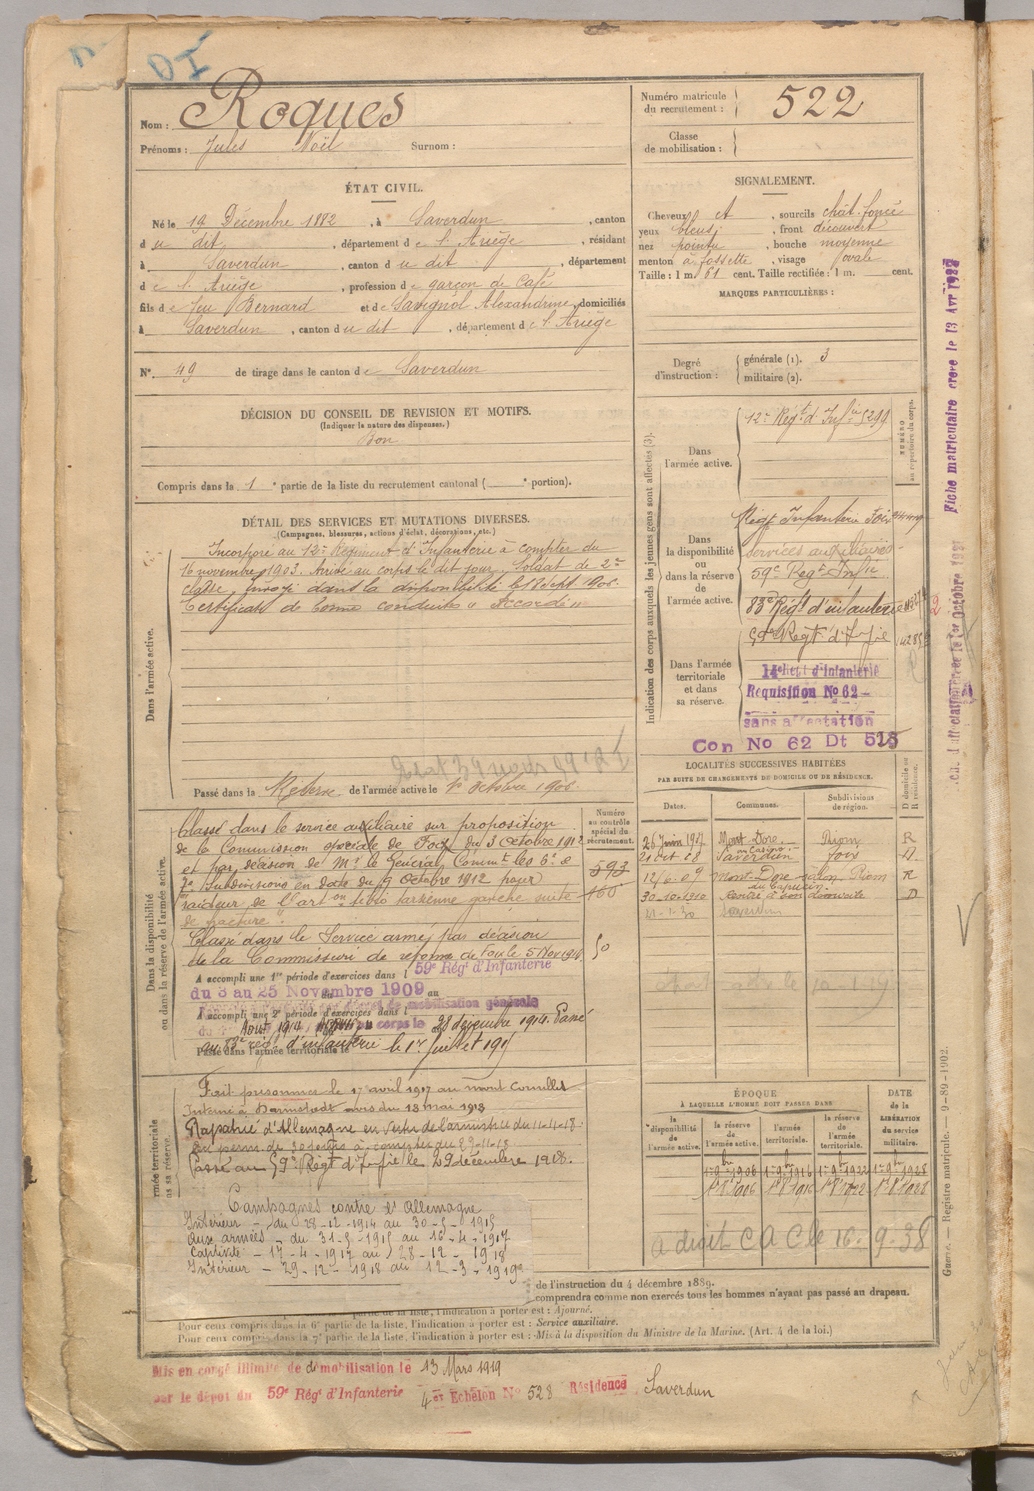 DI
Nom : Roques
Prénoms : Jules Noël Surnom :
Numéro matricule du recrutement : 522
Classe de mobilisation :
ÉTAT CIVIL.
Né le 19 Décembre 1882, à Saverdun, canton
du dit, département de l'Ariège, résidant
à Saverdun, canton du dit, département
de l'Ariège, profession de garçon de Café
fils de feu Bernard et de Savignol Alexandrine, domiciliés
à Saverdun, canton du dit, département de l'Ariège
N° 49 de tirage dans le canton de Saverdun
SIGNALEMENT.
Cheveux et, sourcils chât. foncé
yeux bleus, front découvert
nez pointu, bouche moyenne
menton à fossette, visage ovale
Taille : 1 m. 61 cent. Taille rectifiée : 1 m. cent.
MARQUES PARTICULIÈRES :
Degré d'instruction : générale (1). 3
militaire (2).
DÉCISION DU CONSEIL DE REVISION ET MOTIFS.
(Indiquer la nature des dispenses.)
Bon
Compris dans la 1e partie de la liste du recrutement cantonal ( e portion).
DÉTAIL DES SERVICES ET MUTATIONS DIVERSES.
(Campagnes, blessures, actions d'éclat, décorations, etc.)
Dans l'armée active.
Incorporé au 12e Régiment d'Infanterie à compter du
16 novembre 1903. Arrivé au corps le dit jour. Soldat de 2me
classe, passé dans la disponibilité le 18 sept 1906.
Certificat de bonne conduite "Accordé"
Passé dans la Réserve de l'armée active le 1er Octobre 1906.
Indication des corps auxquels les jeunes gens sont affectés (3).
NUMÉRO au répertoire du corps.
Dans l'armée active.
12e Régt d'Infie 5299
Dans la disponibilité ou dans la réserve de l'armée active.
Régt Infanterie Foix
services auxiliaires
59e Régt Infie
83e Régt d'infanterie
Dans l'armée territoriale et dans sa réserve.
59e Régt d'Infie
14e Regt d'Infanterie
Requisition No 62
sans affectation
Con No 62 Dt 515
Fiche matriculaire créée le 13 Avr
Dans la disponibilité ou dans la réserve de l'armée active.
Numéro au contrôle spécial du recrutement.
Classé dans le service auxiliaire sur proposition
de la Commission spéciale de Foix du 3 Octobre 1912
et par décision de Mr le Général Commt les 6e &
7e Subdivisions en date du 9 Octobre 1912 pour
"raideur de l'arton tibio tarsienne gauche suite
de fracture".
593
Classé dans le Service armé par décision
de la Commission de réforme de Foix le 5 Nov 1914
50
A accompli une 1re période d'exercices dans l 59e Rég d'Infanterie
du 8 au 25 Novembre 1909 au
A accompli une 2e période d'exercices dans l
mobilisation générale
Août 1914 corps le 28 décembre 1914. Passé
au 83e régt d'infanterie le 1er Juillet 191
Passé dans l'armée territoriale le
LOCALITÉS SUCCESSIVES HABITÉES
PAR SUITE DE CHANGEMENTS DE DOMICILE OU DE RÉSIDENCE.
Dates. Communes. Subdivisions de région. D domicile ou R résidence.
26 Juin 1907 Mont Dore Riom R
Casino
21 8 Saverdun Foix D
12/6-09 Mont-Dore Riom R
du Capucin
30-10-1910 rentré à son domicile D
Saverdun
Fait prisonnier le 17 avril 1917 au mont Cornillet
Interné à Darmstadt avis du 18 mai 1918
Rapatrié d'Allemagne en vertu de l'armistice du 11-4-18.
Passé au 59e Régt d'Infie le 29 décembre 1918.
Campagnes contre l'Allemagne
Intérieur - du 28-12-1914 au 30-5-1915
aux armées - du 31-5-1915 au 16-4-1917
Captivité - 17-4-1917 au 28-12-1918
Intérieur - 29-12-1918 au 12-3-1919
ÉPOQUE
À LAQUELLE L'HOMME DOIT PASSER DANS
la disponibilité de l'armée active.
la réserve de l'armée active.
l'armée territoriale.
la réserve de l'armée territoriale.
DATE de la LIBÉRATION du service militaire.
1er 9bre 1906 1er 9bre 1916 1er 9bre 1922 1er 9bre 1928
a droit C A C le 16. 9-38
de l'instruction du 4 décembre 1889.
comprendra comme non exercés tous les hommes n'ayant pas passé au drapeau.
partie de la liste, l'indication à porter est : Ajourné.
Pour ceux compris dans la 6e partie de la liste, l'indication à porter est : Service auxiliaire.
Pour ceux compris dans la 7e partie de la liste, l'indication à porter est : Mis à la disposition du Ministre de la Marine. (Art. 4 de la loi.)
Guerre. — Registre matricule. — 9-89-1902.
Mis en congé illimité de démobilisation le 13 Mars 1919
par le dépôt du 59e Régt d'Infanterie 4e Echelon N° 528 Résidence Saverdun